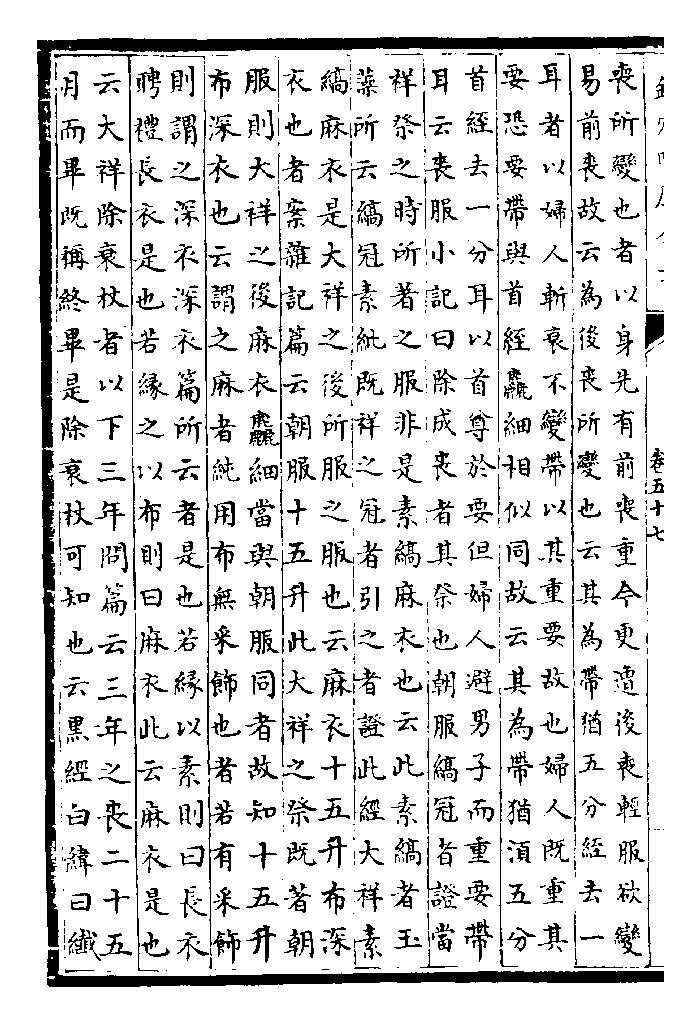 卷五十七
喪所變也者以身先有前喪重今更遭後喪輕服欲變
易前喪故云為後喪所變也云其為帶猶五分絰去一
耳者以婦人斬衰不變帶以其重要故也婦人既重其
要恐要帶與首絰麤細相似同故云其為帶猶須五分
首絰去一分耳以首尊於要但婦人避男子而重要帶
耳云喪服小記曰除成喪者其祭也朝服縞冠者證當
祥祭之時所著之服非是素縞麻衣也云此素縞者玉
藻所云縞冠素紕既祥之冠者引之者證此經大祥素
縞麻衣是大祥之後所服之服也云麻衣十五升布深
衣也者案雜記篇云朝服十五升此大祥之祭既著朝
服則大祥之後麻衣麤細當與朝服同者故知十五升
布深衣也云謂之麻者純用布無采飾也者若有采飾
則謂之深衣深衣篇所云者是也若緣以素則曰長衣
聘禮長衣是也若緣之以布則曰麻衣此云麻衣是也
云大祥除衰杖者以下三年問篇云三年之喪二十五
月而畢既稱終畢是除衰杖可知也云黑經白緯曰纖